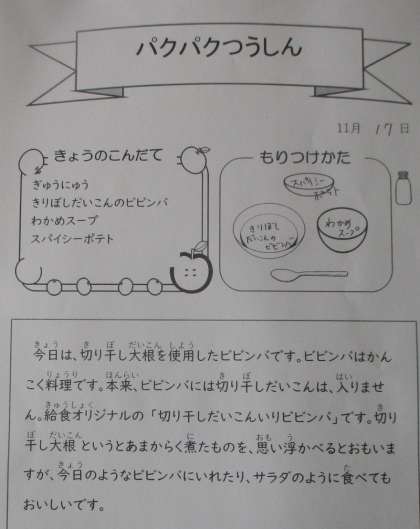 パクパクつうしん
11月 17日
きょうのこんだて
ぎゅうにゅう
きりぼしだいこんのビビンバ
わかめスープ
スパイシーポテト
もりつけかた
スパイシー
ポテト
きりぼし
だいこんの
ビビンバ
わかめ
スープ
今日は、切り干し大根を使用したビビンバです。ビビンバはかん
こく料理です。本来、ビビンバには切り干しだいこんは、入りませ
ん。給食オリジナルの「切り干しだいこんいりビビンバ」です。切り
干し大根というとあまからく煮たものを、思い浮かべるとおもいま
すが、今日のようなビビンバにいれたり、サラダのように食べても
おいしいです。